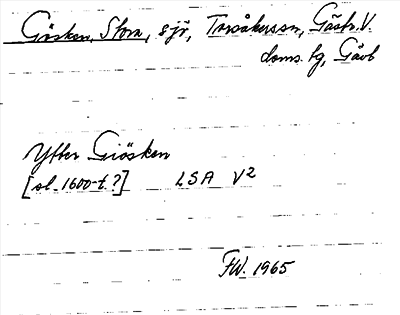 Gösken, Stora, sjö, Torsåkerssn, Gävb. V.
doms. fg, Gävb
Ytter Giösken
[sl. 1600-t.?] LSA V2
FW. 1965